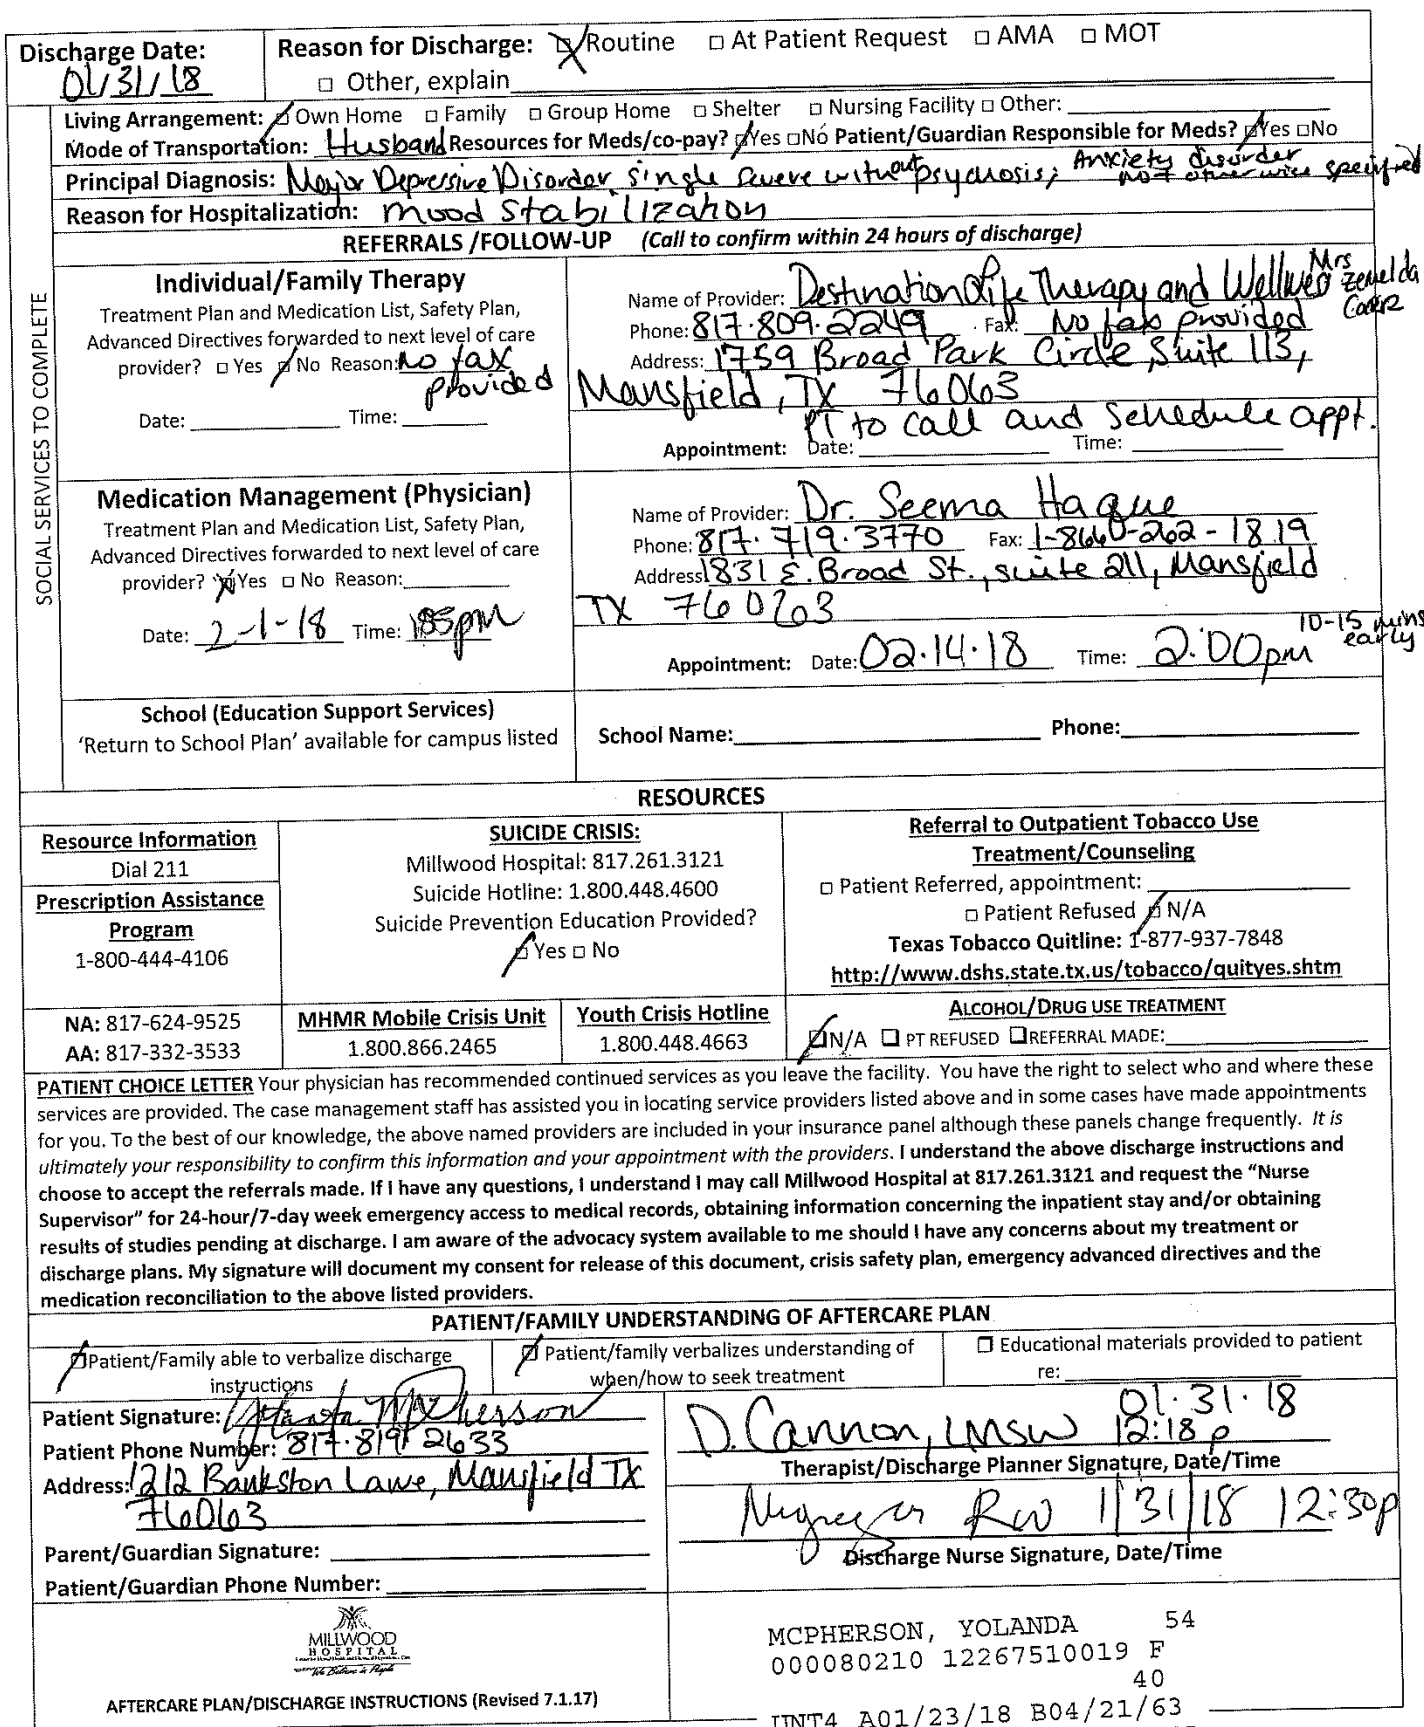 Discharge Date: Reason for Discharge: Routine □ At Patient Request □ AMA □ MOT
01/31/18 □ Other, explain
SOCIAL SERVICES TO COMPLETE
Living Arrangement: Own Home □ Family □ Group Home □ Shelter □ Nursing Facility □ Other:
Mode of Transportation: Husband Resources for Meds/co-pay? Yes □No Patient/Guardian Responsible for Meds? Yes □No
Principal Diagnosis: Major Depressive Disorder, single severe without psychosis; Anxiety disorder not otherwise specified
Reason for Hospitalization: mood stabilization
REFERRALS /FOLLOW-UP (Call to confirm within 24 hours of discharge)
Individual/Family Therapy
Treatment Plan and Medication List, Safety Plan,
Advanced Directives forwarded to next level of care
provider? □ Yes No Reason: no fax provided
Date: Time:
Name of Provider: Destination Life Therapy and Wellness Mrs
Phone: 817.809.2249 Fax: No fax provided
Address: 1759 Broad Park Circle, Suite 113,
Mansfield, TX 76063
PT to call and schedule appt.
Appointment: Date: Time:
Medication Management (Physician)
Treatment Plan and Medication List, Safety Plan,
Advanced Directives forwarded to next level of care
provider? Yes □ No Reason:
Date: 2-1-18 Time:
Name of Provider: Dr. Seema Haque
Phone: 817.719.3770 Fax: 1-866-262-1819
Address 1831 E. Broad St., suite 211, Mansfield
TX 76063
Appointment: Date: 02.14.18 Time: 2:00pm 10-15 mins early
School (Education Support Services)
'Return to School Plan' available for campus listed
School Name: Phone:
RESOURCES
Resource Information
Dial 211
Prescription Assistance
Program
1-800-444-4106
SUICIDE CRISIS:
Millwood Hospital: 817.261.3121
Suicide Hotline: 1.800.448.4600
Suicide Prevention Education Provided?
Yes □ No
Referral to Outpatient Tobacco Use
Treatment/Counseling
□ Patient Referred, appointment:
□ Patient Refused N/A
Texas Tobacco Quitline: 1-877-937-7848
http://www.dshs.state.tx.us/tobacco/quityes.shtm
NA: 817-624-9525
AA: 817-332-3533
MHMR Mobile Crisis Unit
1.800.866.2465
Youth Crisis Hotline
1.800.448.4663
ALCOHOL/DRUG USE TREATMENT
N/A □ PT REFUSED □REFERRAL MADE:
PATIENT CHOICE LETTER Your physician has recommended continued services as you leave the facility. You have the right to select who and where these
services are provided. The case management staff has assisted you in locating service providers listed above and in some cases have made appointments
for you. To the best of our knowledge, the above named providers are included in your insurance panel although these panels change frequently. It is
ultimately your responsibility to confirm this information and your appointment with the providers. I understand the above discharge instructions and
choose to accept the referrals made. If I have any questions, I understand I may call Millwood Hospital at 817.261.3121 and request the "Nurse
Supervisor" for 24-hour/7-day week emergency access to medical records, obtaining information concerning the inpatient stay and/or obtaining
results of studies pending at discharge. I am aware of the advocacy system available to me should I have any concerns about my treatment or
discharge plans. My signature will document my consent for release of this document, crisis safety plan, emergency advanced directives and the
medication reconciliation to the above listed providers.
PATIENT/FAMILY UNDERSTANDING OF AFTERCARE PLAN
Patient/Family able to verbalize discharge
instructions
Patient/family verbalizes understanding of
when/how to seek treatment
□ Educational materials provided to patient
re:
Patient Signature: McPherson
Patient Phone Number: 817.819.2633
Address: 1212 Bankston Lane, Mansfield TX
76063
Parent/Guardian Signature:
Patient/Guardian Phone Number:
D. Cannon, LMSW 01.31.18
12:18p
Therapist/Discharge Planner Signature, Date/Time
RN 1/31/18 12:30p
Discharge Nurse Signature, Date/Time
MILLWOOD
HOSPITAL
We Believe in People
AFTERCARE PLAN/DISCHARGE INSTRUCTIONS (Revised 7.1.17)
MCPHERSON, YOLANDA 54
000080210 12267510019 F
40
UNT4 A01/23/18 B04/21/63